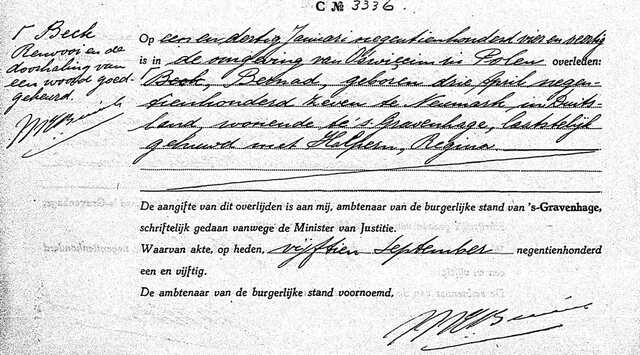 C № 3336.
Γ Beck
Renvooi en de
doorhaling van
een woord goed-
gekeurd.
Op een en dertig Januari negentienhonderd vier en veertig
is in de omgeving van Oswiecim in Polen overleden:
Beck, Betnad, geboren drie April negen-
tienhonderd zeven te Neumark, in Duits-
land, wonende te 's Gravenhage, laatstelijk
gehuwd met Halpern, Regina.
De aangifte van dit overlijden is aan mij, ambtenaar van de burgerlijke stand van 's-Gravenhage,
schriftelijk gedaan vanwege de Minister van Justitie.
Waarvan akte, op heden, vijftien September negentienhonderd
een en vijftig.
De ambtenaar van de burgerlijke stand voornoemd,